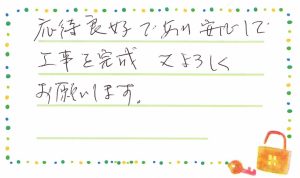 応待良好であり安心して
工事を完成 又よろしく
お願いします。